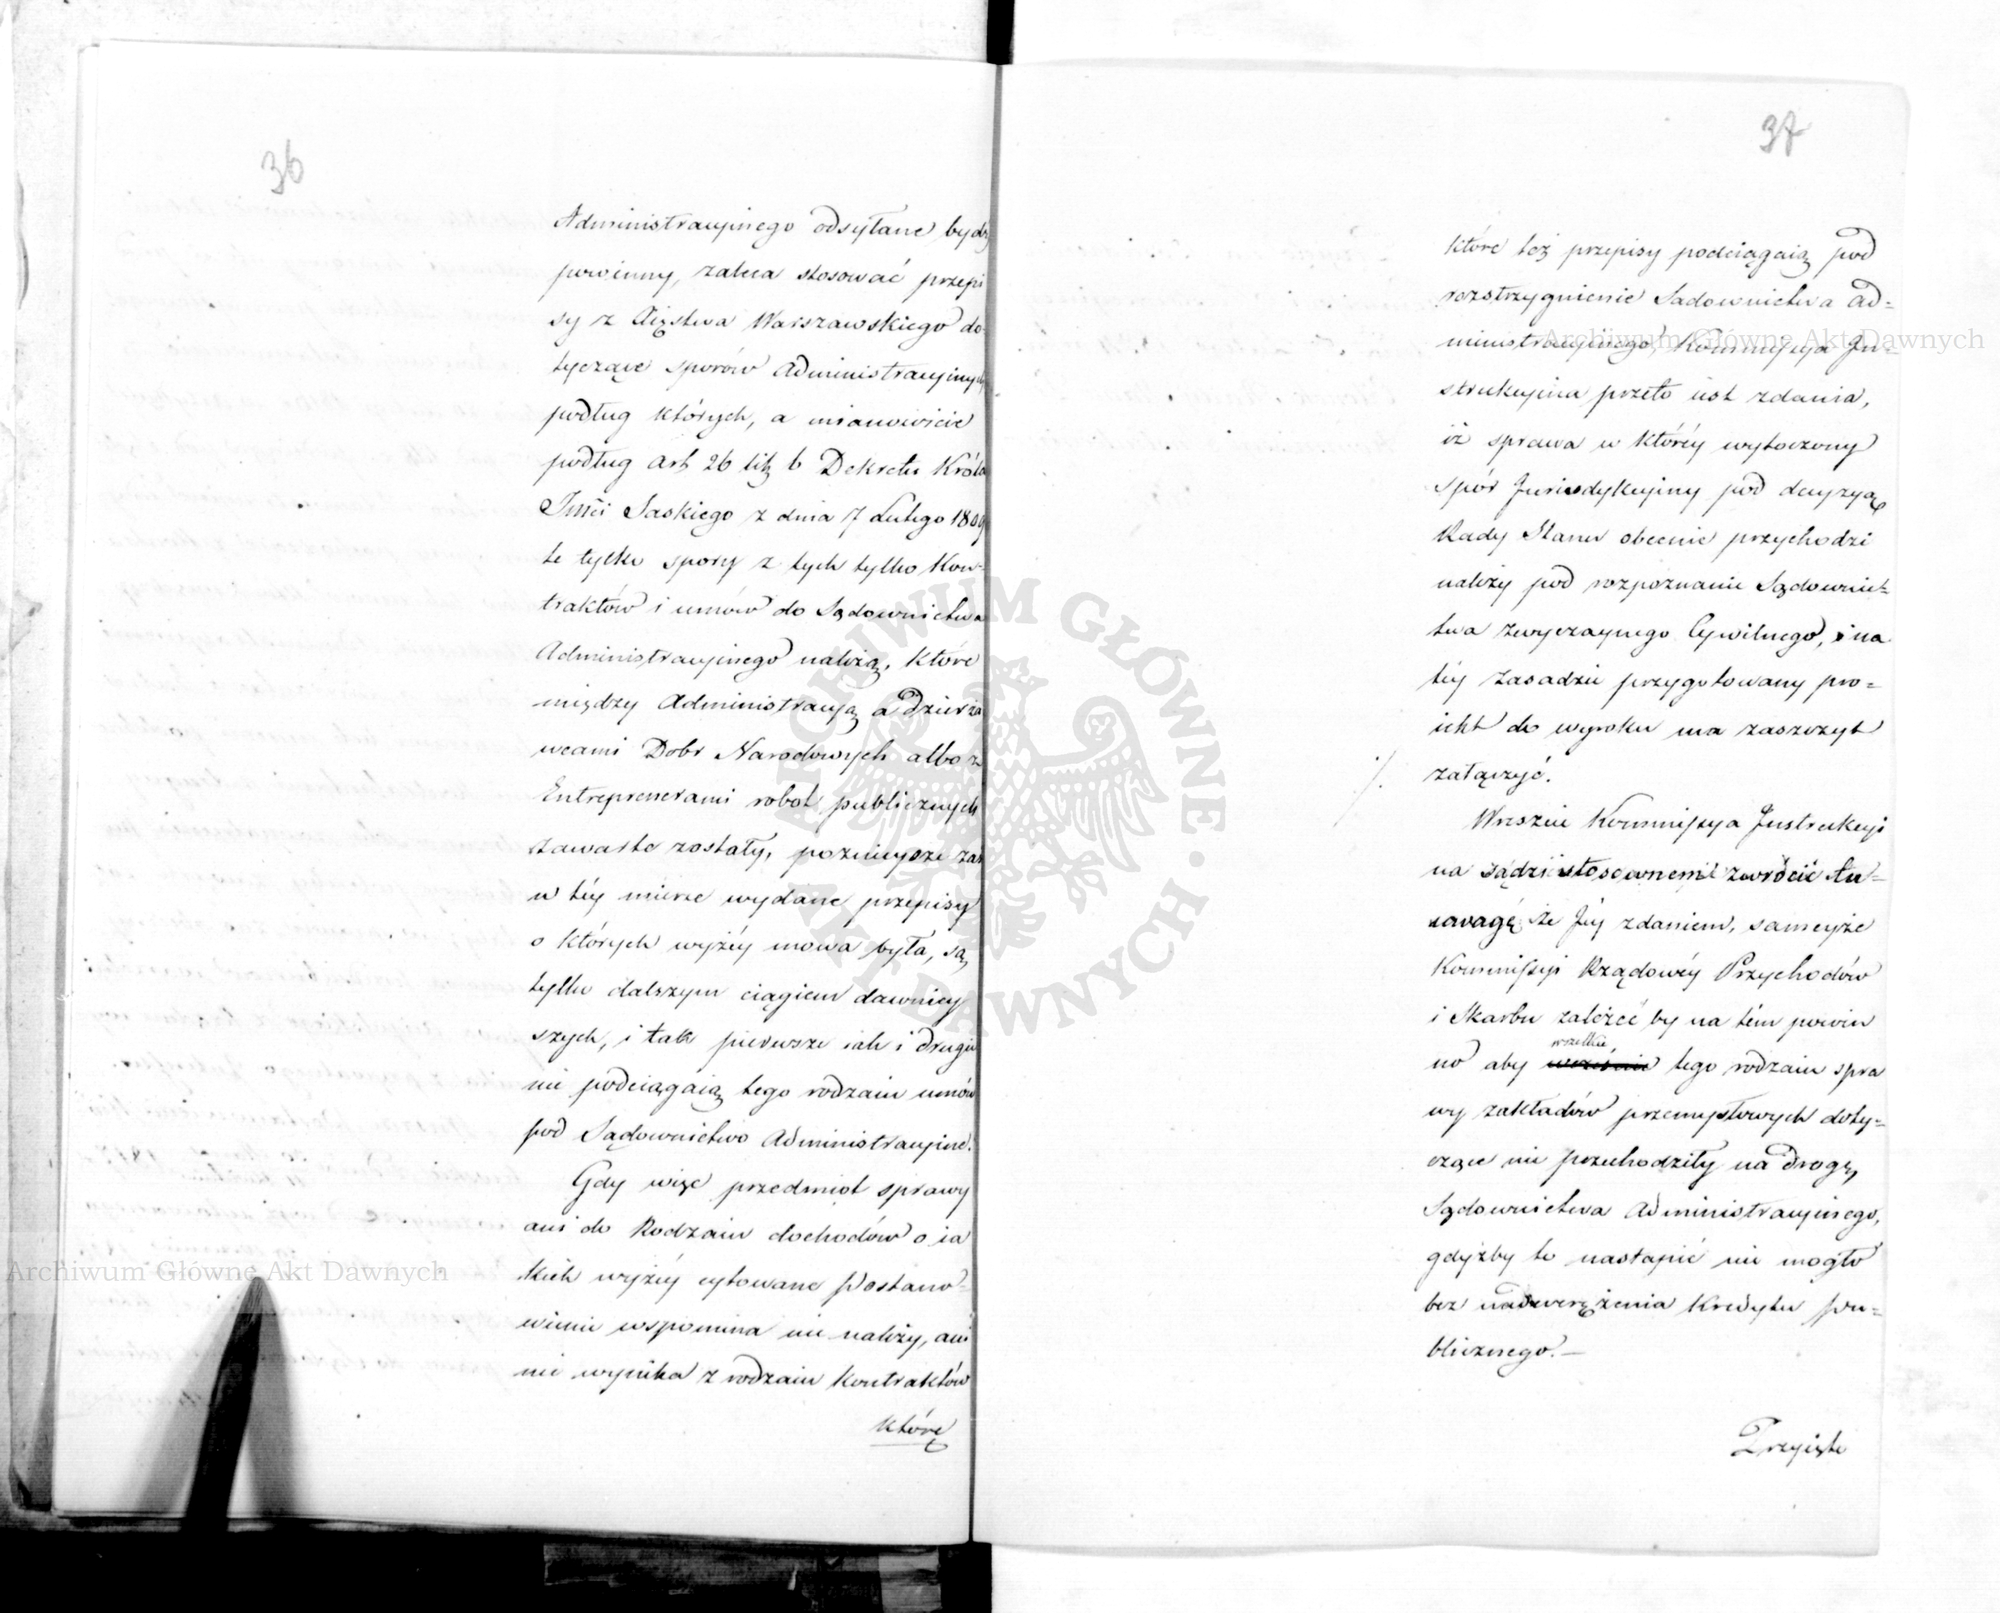 36
Administracyinego odsyłane bydź
powinny, zaleca stosować przepi
sy z Xięstwa Warszawskiego do-
tyczące sporów Administracyinych
podług których, a mianowicie
podług art 26 lit b Dekretu Króla
Jmći Saskiego z dnia 7 Lutego 1809
te tylko spory z tych tylko Kon-
traktów i umów do Sądownictwa
Administracyinego należą, które
między Administracyą a Dzierża
wcami Dobr Narodowych albo z
Entreprenerami robot publicznych
zawarte zostały, poznieysze zaś
w téy mierze wydane przepisy
o których wyżéy mowa była, są
tylko dalszym ciągiem dawniey
szych, i tak pierwsze iak i drugie
nie podciągaią tego rodzaiu umów
pod Sądownictwo Administracyine.
Gdy więc przedmiot sprawy
ani do Rodzaiu dochodów o ia
kich wyżéy cytowane Postano-
wienie wspomina nie należy, ani
nie wynika z rodzaiu kontraktów
które
37
które też przepisy podciągaią pod
rozstrzygnienie Sadownictwa Ad-
ministracyinego, Kommissya In-
strukcyina przeto iest zdania,
iż sprawa w któréy wytoczony
spór Jurisdykcyiny pod decyzyą
Rady Stanu obecnie przychodzi
należy pod rozpoznanie Sądownic-
twa zwyczaynego Cywilnego, i na
téy zasadzie przygotowany pro-
iekt do wyroku ma zaszczyt
załączyć.
Wreszcie Kommissya Instrukcyi
na sądzi stosownemi zwrócić Au-
uwagę że Jéy zdaniem, sameyże
Kommissyi Rządowéy Przychodów
i Skarbu zależeć by na tém powin
wszelkie
no aby wcześnie tego rodzaiu spra
wy zakładów przemysłowych doty-
czące nie przechodziły na drogę
Sądownictwa Administracyinego,
gdyżby to nastąpić nie mogło
bez nadwerężenia Kredytu pu-
blicznego.—
Przyięte
Archiwum Główne Akt Dawnych
Archiwum Główne Akt Dawnych
ARCHIWUM GŁÓWNE AKT DAWNYCH